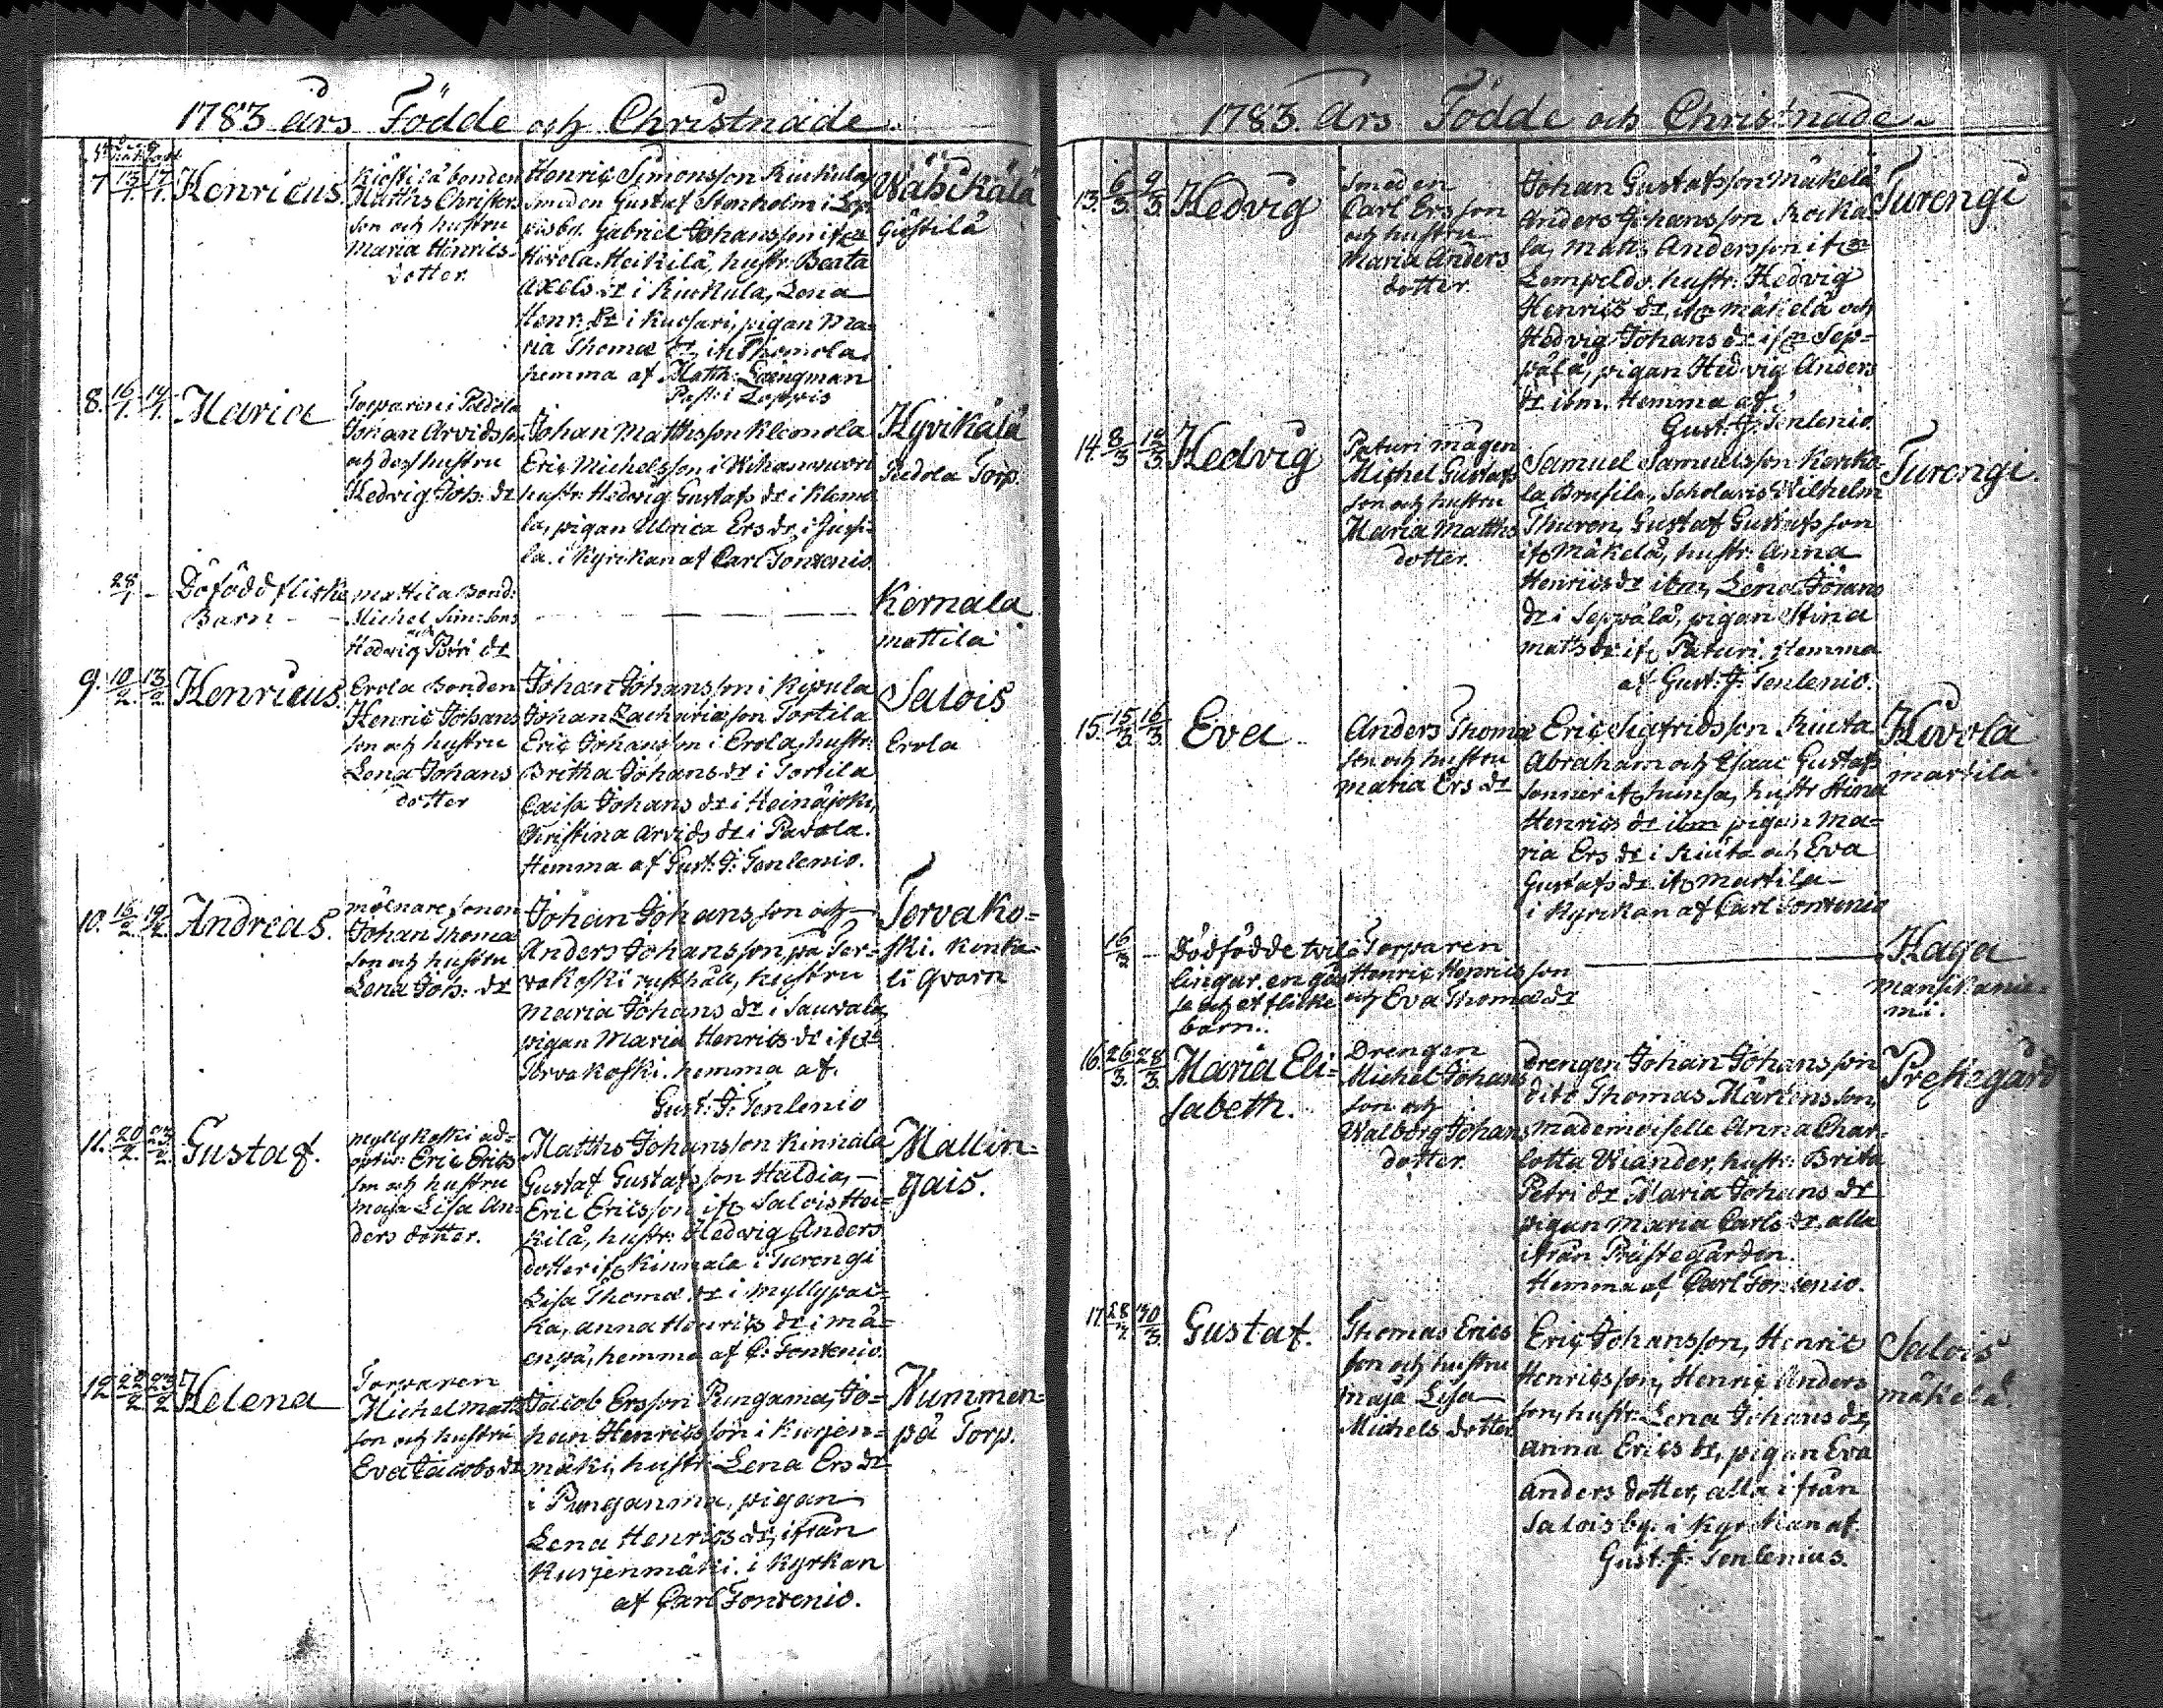 1783 års Födde och Christnade
7. 13/1. 17/1. Henricus.
Kiöstilä bonden
Matths Christers
son och hustru
Maria Henrics-
dotter.
Henric Simonsson Kiukula,
Smeden Gustaf Stenholm i
Gabriel Johansson
Heikilä, hustr: Beata
Axels dr i Kiukula, Lena
Henr: dr i Kussari, pigan Ma=
ria Thomæ dr, Thomola.
hemma af Matth: Långman
Past: i Loppis
Wähikälä
8. 16/1. 19/1. Maria
Torparen i
Johan Arvidsson
och dess hustru
Hedvig Joh: dr
Johan Matthsson Klemola
Eric Michelsson i
hustr: Hedvig Gustafs dr i Klemo
la, pigan Ulrica Ers dr, i
la. i Kyrckan af Carl Fontenio.
Hyvikälä
Torp.
28/1 —
Döfödd flicke
Barn —
Mattila Bond:
Michel Sim: sons
och
Hedvig Påvri dr
Kernala
mattila
9. 10/2. 13/2. Henricus.
Erola Bonden
Henric Johans
son och hustru
Lena Johans
dotter
Johan Johansson i
Johan Zachariæson Tortila
Eric Johansson i Erola, hustr:
Britha Johans dr i Tortila
Caisa Johans dr i Heinäjoki,
Christina Arvids dr i Pavola.
Hemma af Gust: J: Tenlenio.
Salois
Erola
10. 16/2. 19/2. Andreas.
mölnare sonen
Johan Thomæ
son och hustru
Lena Joh: dr
Johan Johansson och
Anders Johansson på Ter=
vakoski rusthåll, hustru
Maria Johans dr i Sauvala,
pigan Maria Henrics dr
Tervakoski. hemma af.
Gust: J: Tenlenio
Tervako=
ski.
li Qvarn
11. 20/2. 23/2. Gustaf.
Myllykoski ad=
optiv: Eric Erics
son och hustru
Maja Lisa An=
ders dotter.
Matths Johansson Kinnala
Gustaf Gustafsson Haldia, —
Eric Ericsson if: Salois Hei=
kilä, hustr: Hedvig Anders
dotter if: Kinnala i Turengi
Lisa Thomæ dr i Myllypai=
ka, Anna Henrics dr i mä=
enpä, hemma af C: Fontenio.
Mallin=
gais.
12 22/2 23/2 Helena
Torparen
Michel Matts
son och hustru
Eva Jacobs dr
Jacob Ersson Rungama, Jo=
han Henricsson i Kurjen=
mäki, hustr: Lena Ers dr
i Runganma, pigan
Lena Henrics dr, ifrån
Kurjenmäki. i Kyrkan
af Carl Fontenio.
Nummen=
pä Torp.
1783. Års Födde och Christnade
13. 6/3. 9/3. Hedvig
Smeden
Carl Ersson
och hustru
Maria Anders
dotter.
Johan Gustafsson Mäkelä
Anders Johansson
la, Matts Andersson
hustr: Hedvig
Henrics dr, if: mäkelä och
Hedvig Johans dr if: Sep=
pälä, pigan Hedvig Anders
dr ibm. Hemma af
Gust: J: Tenlenio.
Turengi
14. 8/3 12/3. Hedvig
Paturi mågen
Michel Gustafs
son och hustru
Maria Matths
dotter.
Samuel Samuelsson
la Brusila, Scholaris Wilhelm
Thuren, Gustaf Gustafsson
if: Mäkelä, hustr: Anna
Henrics dr ibm, Lena Jörans
dr i Seppälä, pigan Stina
Mats dr if: Paturi. Hemma
af Gust: J: Tenlenio.
Turengi.
15. 15/3. 16/3. Eva
Anders Thomæ
son och hustru
Maria Ers dr
Eric Sigfridsson Kiuta
Abraham och Esaac Gustafs
sönner if: hinsa, hustr Stina
Henrics dr ibm pigan Ma=
ria Ers dr i Kiuta och Eva
Gustafs dr if: Martila —
i Kyrckan af Carl Fontenio
Hivola
martila.
16/3 —
Dödfödde tvil=
lingar. en
se och et flicke
barn..
Torparen
Henric Henricsson
och Eva Thomæ dr
Haga
mi.
16. 26/3. 28/3. Maria Eli=
sabeth.
Drengen
Michel Johans
son och
Walborg Johans
dotter.
drengen Johan Johansson
dito Thomas Mårtensson,
mademoiselle Anna Char=
lotta Wiander, hustr: Brita
Petri dr Maria Johans dr
pigan Maria Carls dr. alla
ifrån Prästegården.
Hemma af Carl Fontenio.
Prestegård
17 28/3. 30/3. Gustaf.
Thomas Erics
son och hustru
Maja Lisa
Michels dotter
Eric Johansson, Henric
Henricsson, Henric Anders
son, hustr: Lena Johans dr,
Anna Erics dr, pigan Eva
Anders dotter, alla ifrån
Salois by. i Kyrckan af
Gust: J: Tenlenius.
Salois
mäkelä.